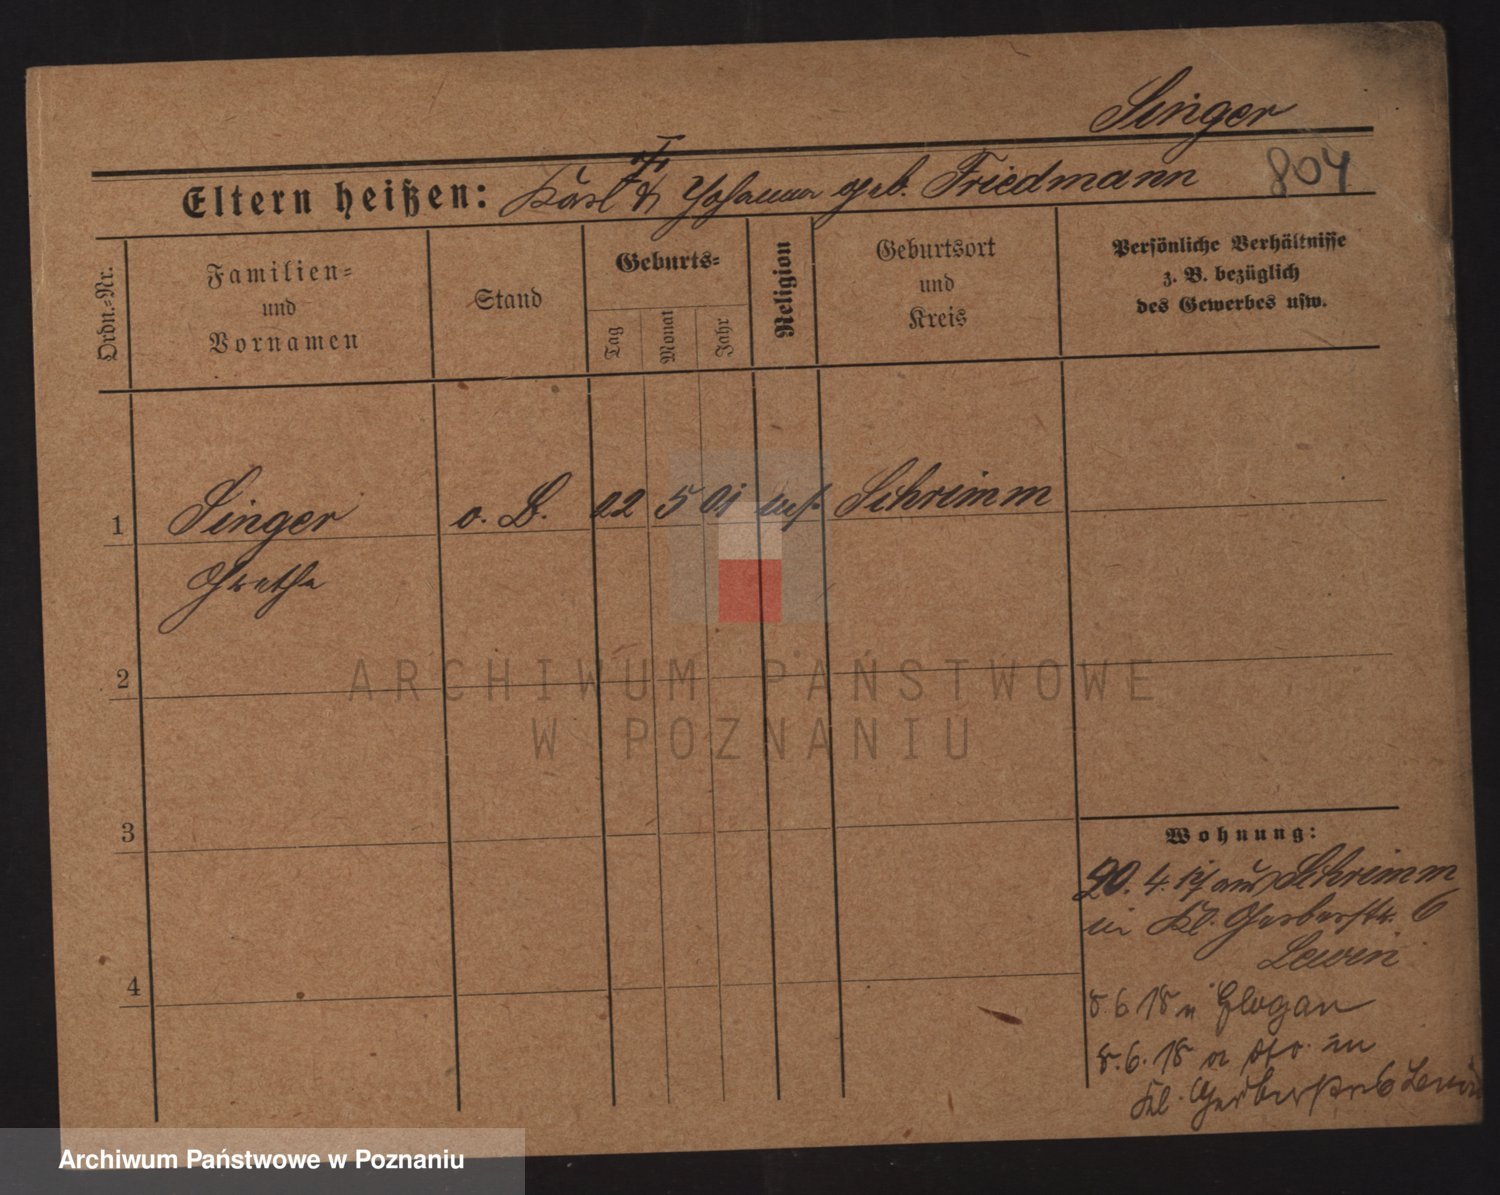 Singer
804
Eltern heißen: Karl & Johanna geb. Friedmann
Ordn.-Nr.
Familien-
und
Vornamen
Stand
Geburts-
Tag
Monat
Jahr
Religion
Geburtsort
und
Kreis
Persönliche Verhältnisse
z. B. bezüglich
des Gewerbes usw.
1 Singer o. B. 22 5 01 Schrimm
Grethe
2
3
4
Wohnung:
20. 4. 17 aus Schrimm
in Kl. Gerberstr. 6
Lewin
8 6 18 n Glogau
8. 6. 18 in
Kl. Gerberstr 6 Lewin
ARCHIWUM PAŃSTWOWE
W POZNANIU
Archiwum Państwowe w Poznaniu